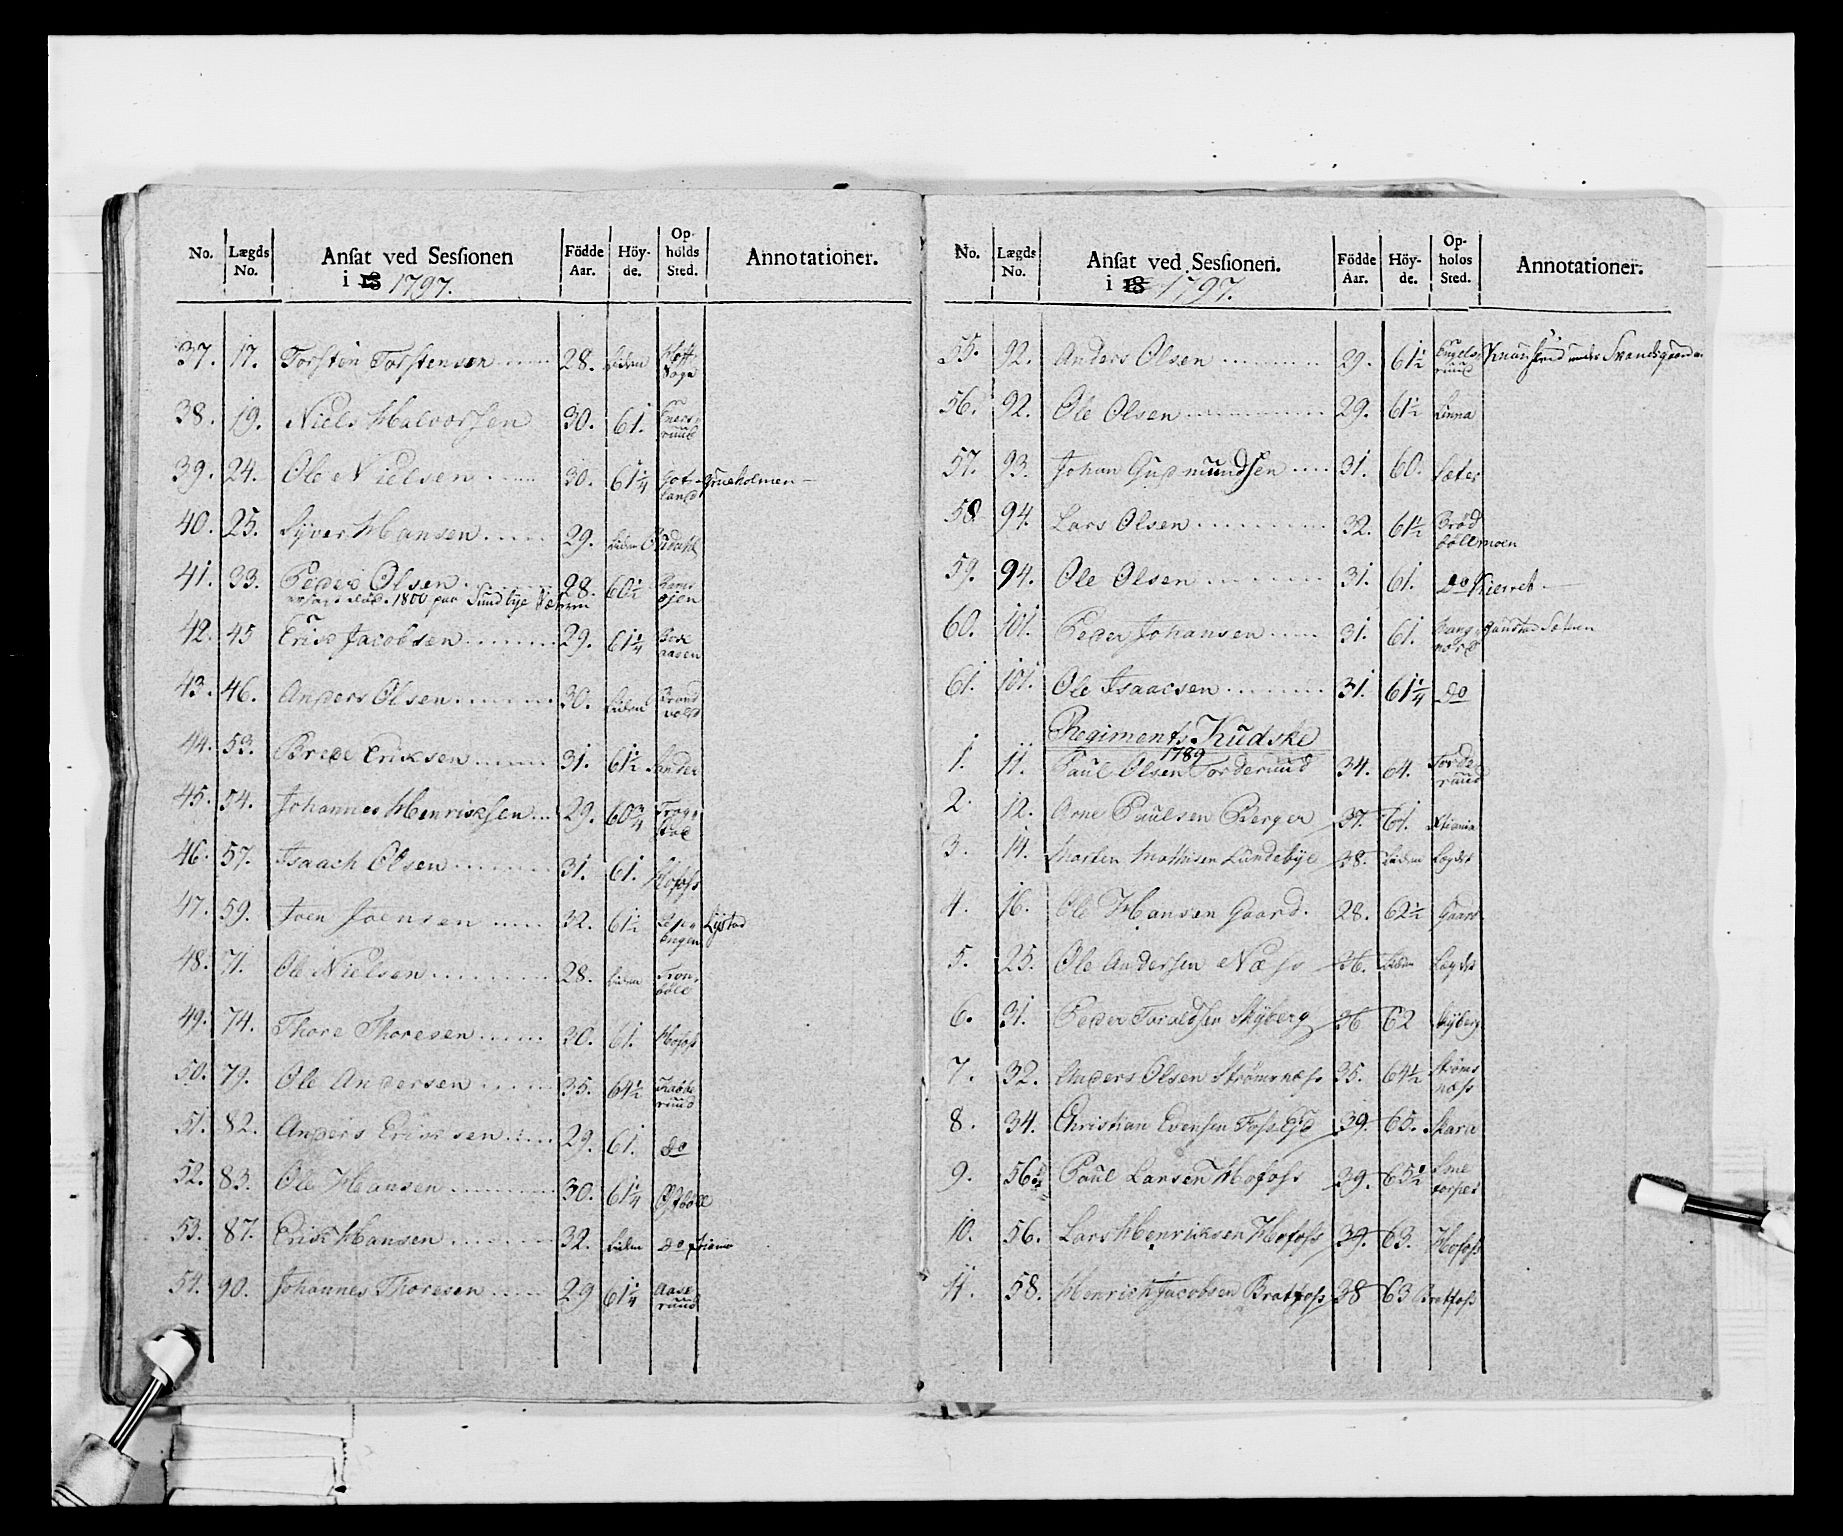 No. Lægds No. Ansat ved Sessionen i 18 1797. Födde Aar. Höyde. Opholds Sted. Annotationer.
37. 17. Torsten Torstensen 28. Liden Hoff Bøge
38. 19. Niels Halvorsen 30. 61. ruud
39. 24. Ole Nielsen 30. 61 1/4 land Grueholmen
40. 25. Syver Hansen 29. Liden
41. 33. Peder Olsen 28. 60 1/2
1800 paa Sundbye
42. 45 Erik Jacobsen 29. 61 1/4 aasen
43. 46. Anders Olsen 30. Liden Brand vold
44. 53. Brede Eriksen 31. 61 1/2 Sander
45. 54. Johannes Henriksen 29. 60 3/4 Trøg stad
46. 57. Isaach Olsen 31. 61. Hofoss
47. 59. Joen Joensen 32. 61 1/2 engen Lystad
48. 71. Ole Nielsen 28. Liden Tron bøll
49. 74. Thore Thoresen 30. 61. Hofoss
50. 79. Ole Andersen 35. 64 1/2 Kabbe ruud
51. 82. Anders Eriksen 29. 61. do
52. 83. Ole Hansen 30. 61 1/4
53. 87. Erik Hansen 32. Liden do
54. 90. Johannes Thoresen 29 61 1/4 Aase ruud
No. Lægds No. Ansat ved Sessionen. i 18 1797. Födde Aar. Höyde. Opholos Sted. Annotationer.
55. 92. Anders Olsen 29. 61 1/2 Engels ruud under
56. 92. Ole Olsen 29. 61 1/2 Linna
57. 93. Johan Gudmundsen 31. 60. Sæter
58 94. Lars Olsen 32. 61 1/2 Brød bøllmoen
59. 94. Ole Olsen 31. 61. do Kierret
60. 101. Peder Johansen 31. 61.
61. 101. Ole Isaacsen 31. 61 1/4 do
Regiments Kudske
1789
1. 11. Paul Olsen Torderuud 34. 64. Torde ruud
2. 12. Arne Paulsen Berger 37. 61. Xtiania
3. 14. Morten Mathisen Lundebye 38. Liden Lægdet
4. 16. Ole Hansen Gaard. 28. 62 1/2 Gaard
5. 25. Ole Andersen Næss 36. Liden Lægdet
6. 31. Peder Taraldsen Skyberg 36 62 Skyberg
7. 32. Anders Olsen Strømsnæss 35. 64 1/2 Strøms næss
8. 34. Christian Evensen Foss Ejd 39. 65. Skara
9. 56 Paul Larsen Hofoss 39. 65 1/2
10. 56. Lars Henriksen Hofoss 39. 63. Hofoss
11. 58. Henrich Jacobsen Bratfoss 38 63 Bratfoss